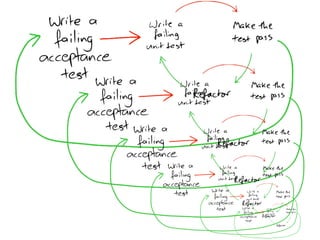 Write a
failing
acceptance
test
Write a
failing
unit test
Make the
test pass
Write a
failing
acceptance
test
Write a
Refactor
unit test
Make the
test pass
Write a
failing
acceptance
test
Write a
failing
unit
Refactor
Make the
test pass
Write a
failing
acceptance
test
Write a
failing
unit
Refactor
Make the
test pass
Write a
failing
acceptance
test
Write a
Refactor
Make the
test pass